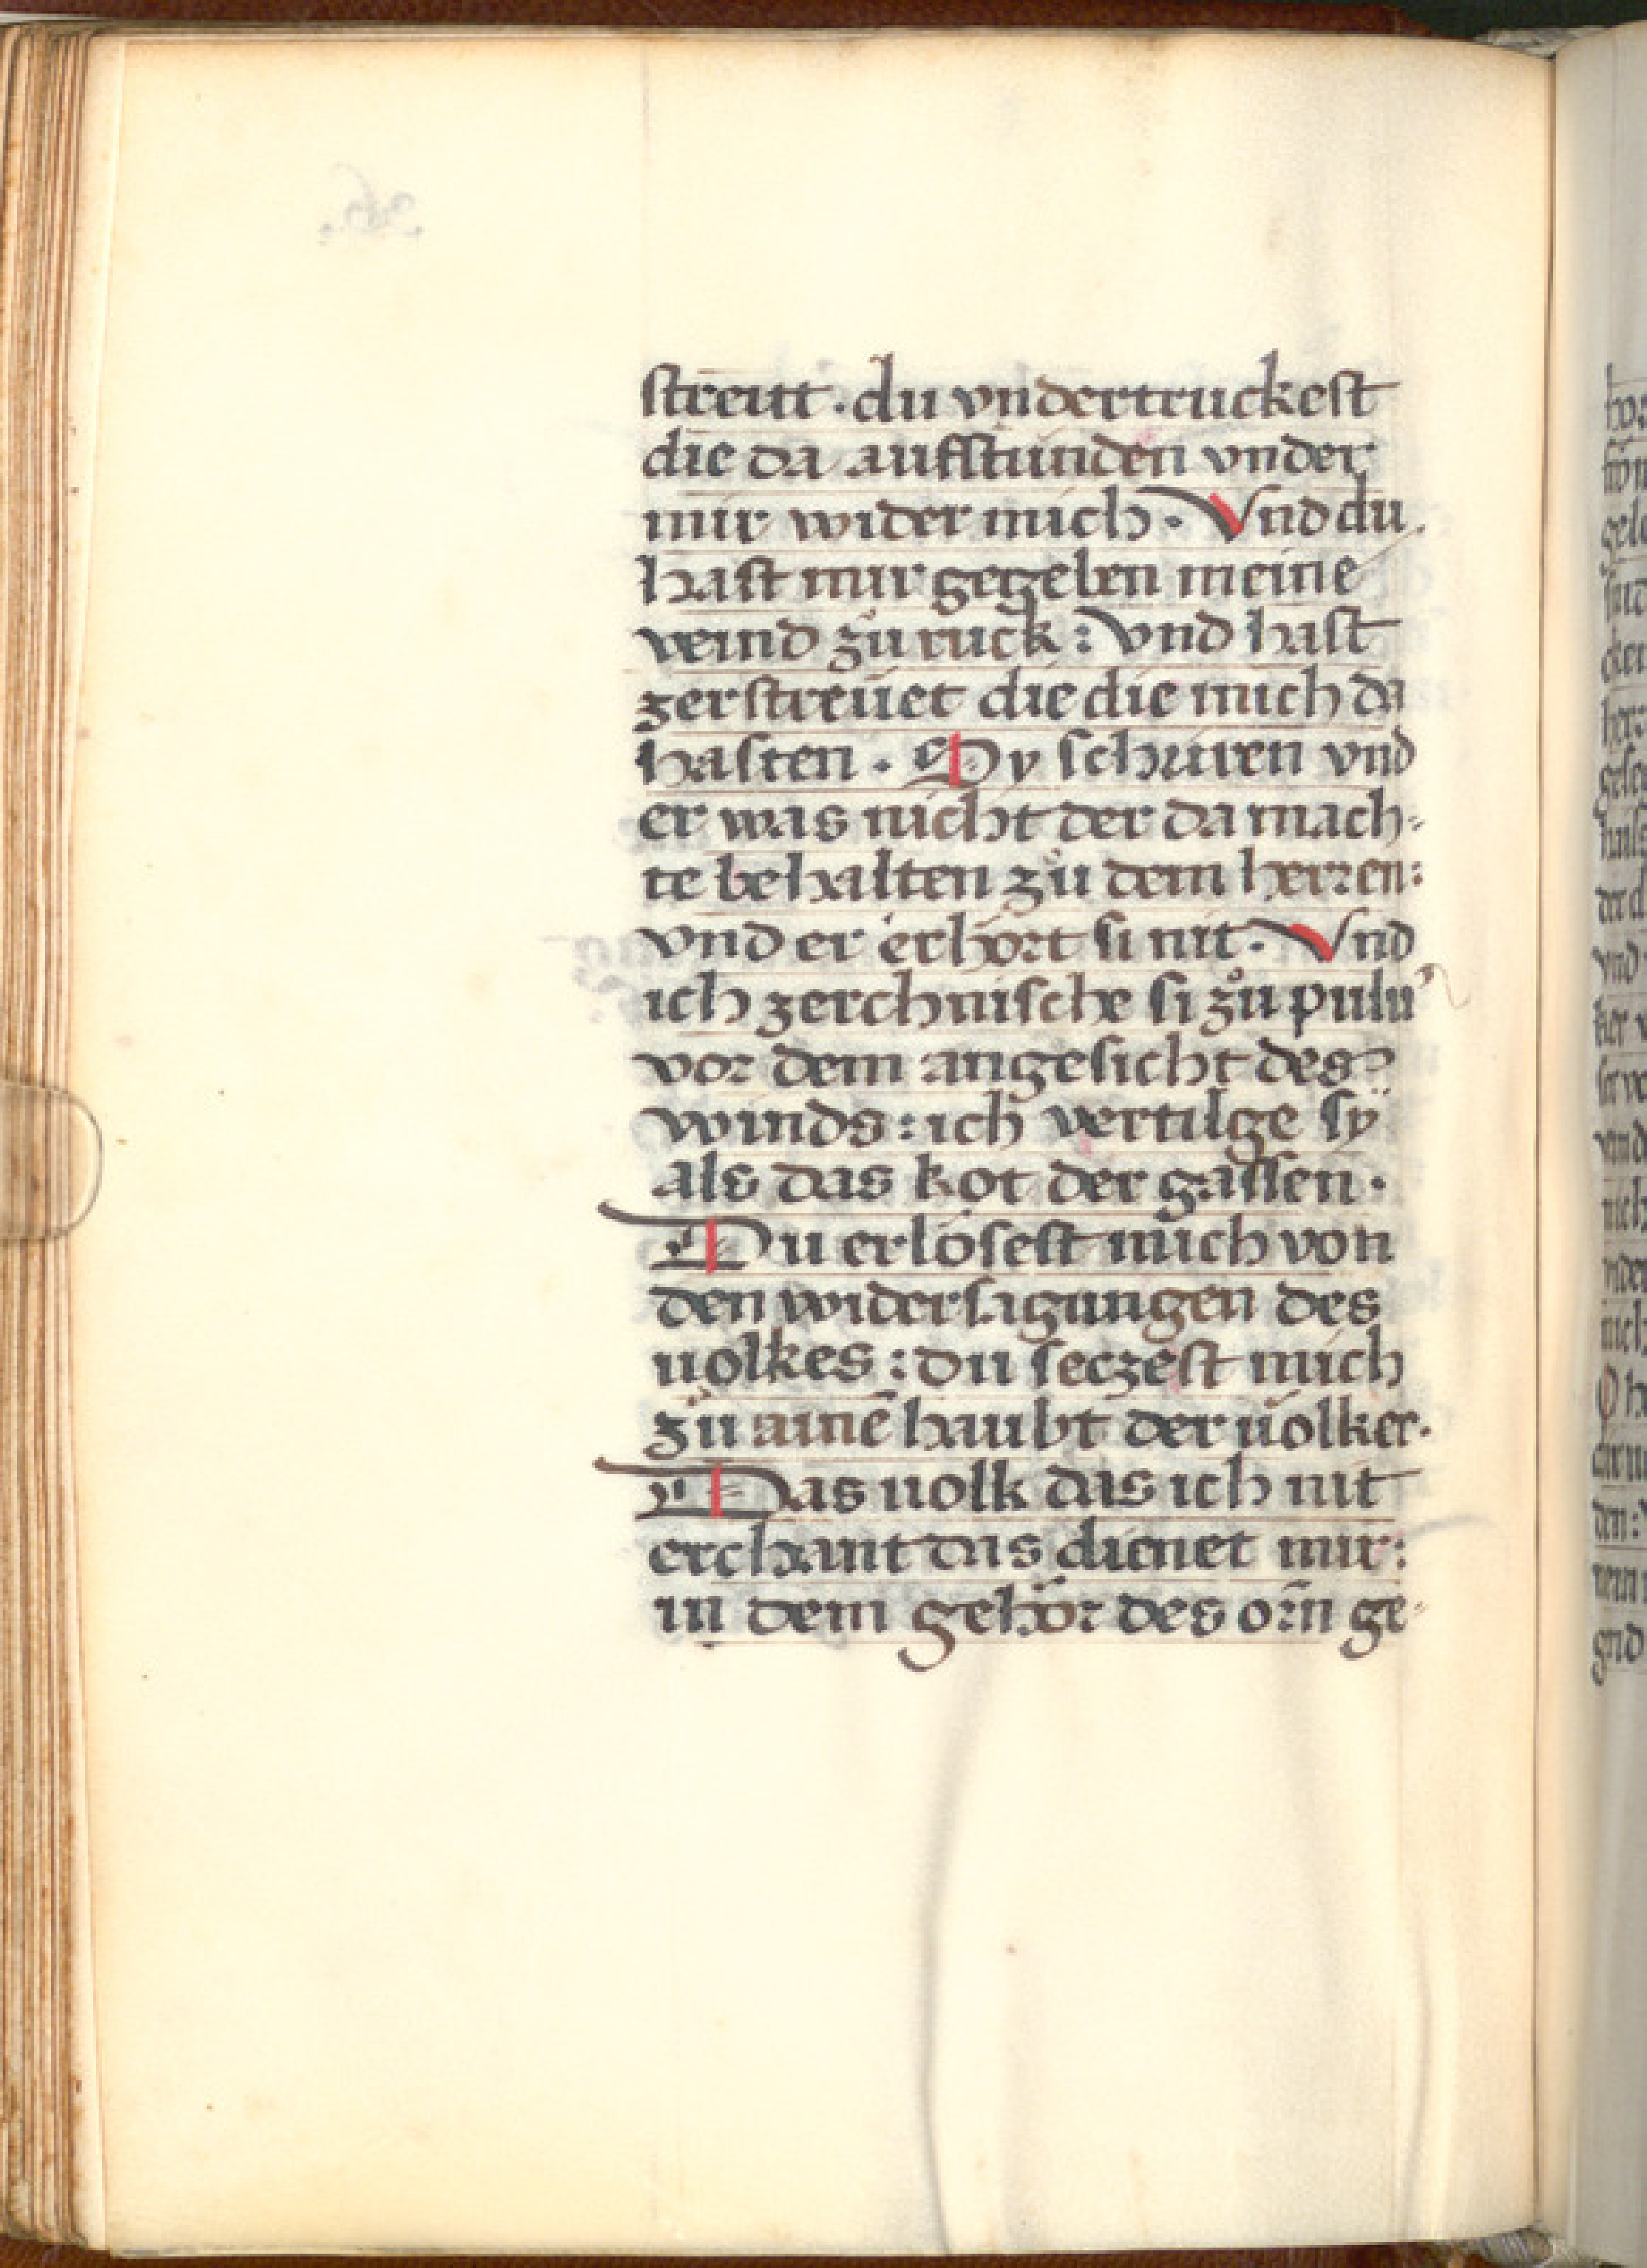 streitt · du vndertruckest
die da auffstunden vnder
mir wider mich · Vnd du
hast mir gegeben meine
veind zu̇ ruck : vnd hast
zerstreüet die die mich da
hasten · Sy schriren vnd
er was nicht der da mach⸗
te behalten zů dem herren:
vnd er erhört si nit · Vnd
ich zerchnische si zů pulu̕
vor dem angesicht des
winds : ich vertilge sÿ
als das kot der gassen ·
Du erlösest mich von
den widersagungen des
uolkes : du seczest mich
zů ainē haubt der uölker ·
Das uolk das ich nit
erchant das dienet mir :
in dem gehör des orn̄ ge⸗